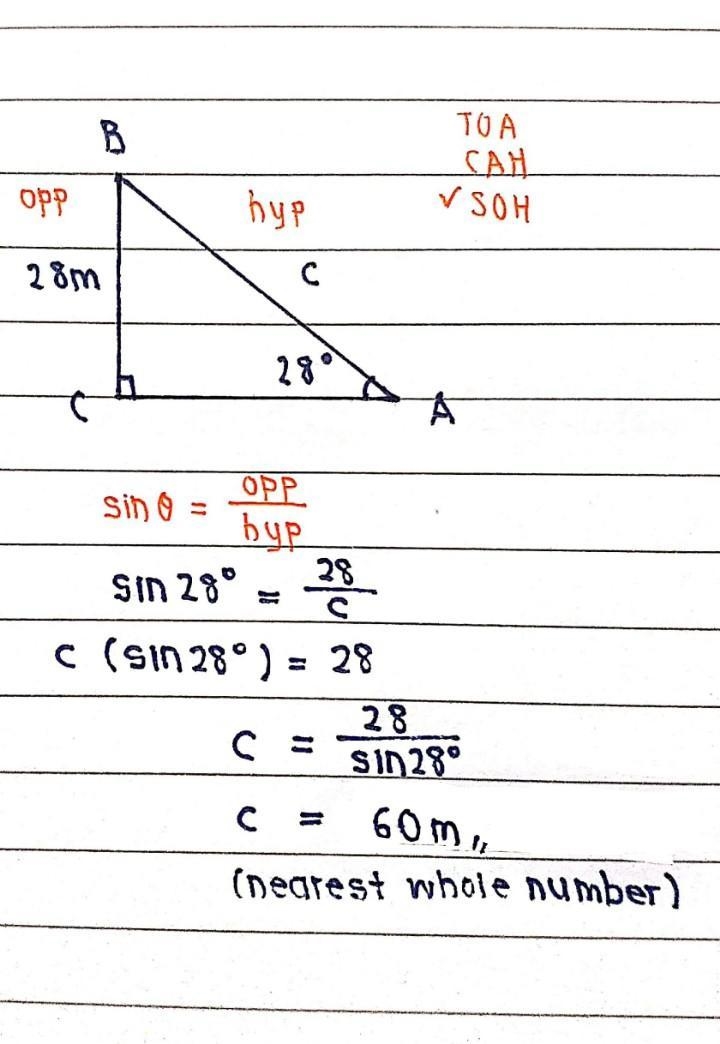 B
TOA
CAH
opp hyp ✓ SOH
28m c
28°
C A
sin θ = opp/hyp
sin 28° = 28/c
c (sin 28°) = 28
c = 28/sin28°
c = 60m,,
(nearest whole number)